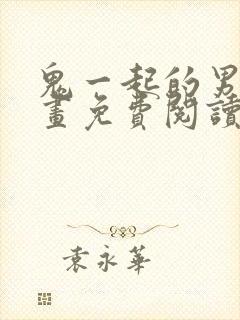 鬼一起的男
畫免費閱讀
袁永華